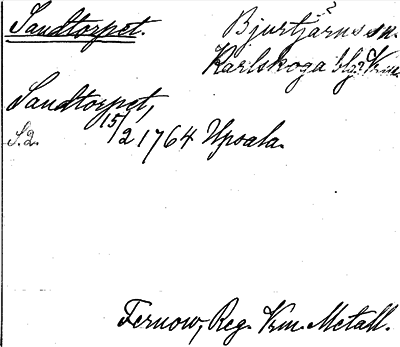 Sandtorpet.
Bjurtjärns sn.
Karlskoga bg. Vrm.
Sandtorpet,
S.2. 15/2 1764 Upsala.
Fernow, Reg. Vrm. Metall.